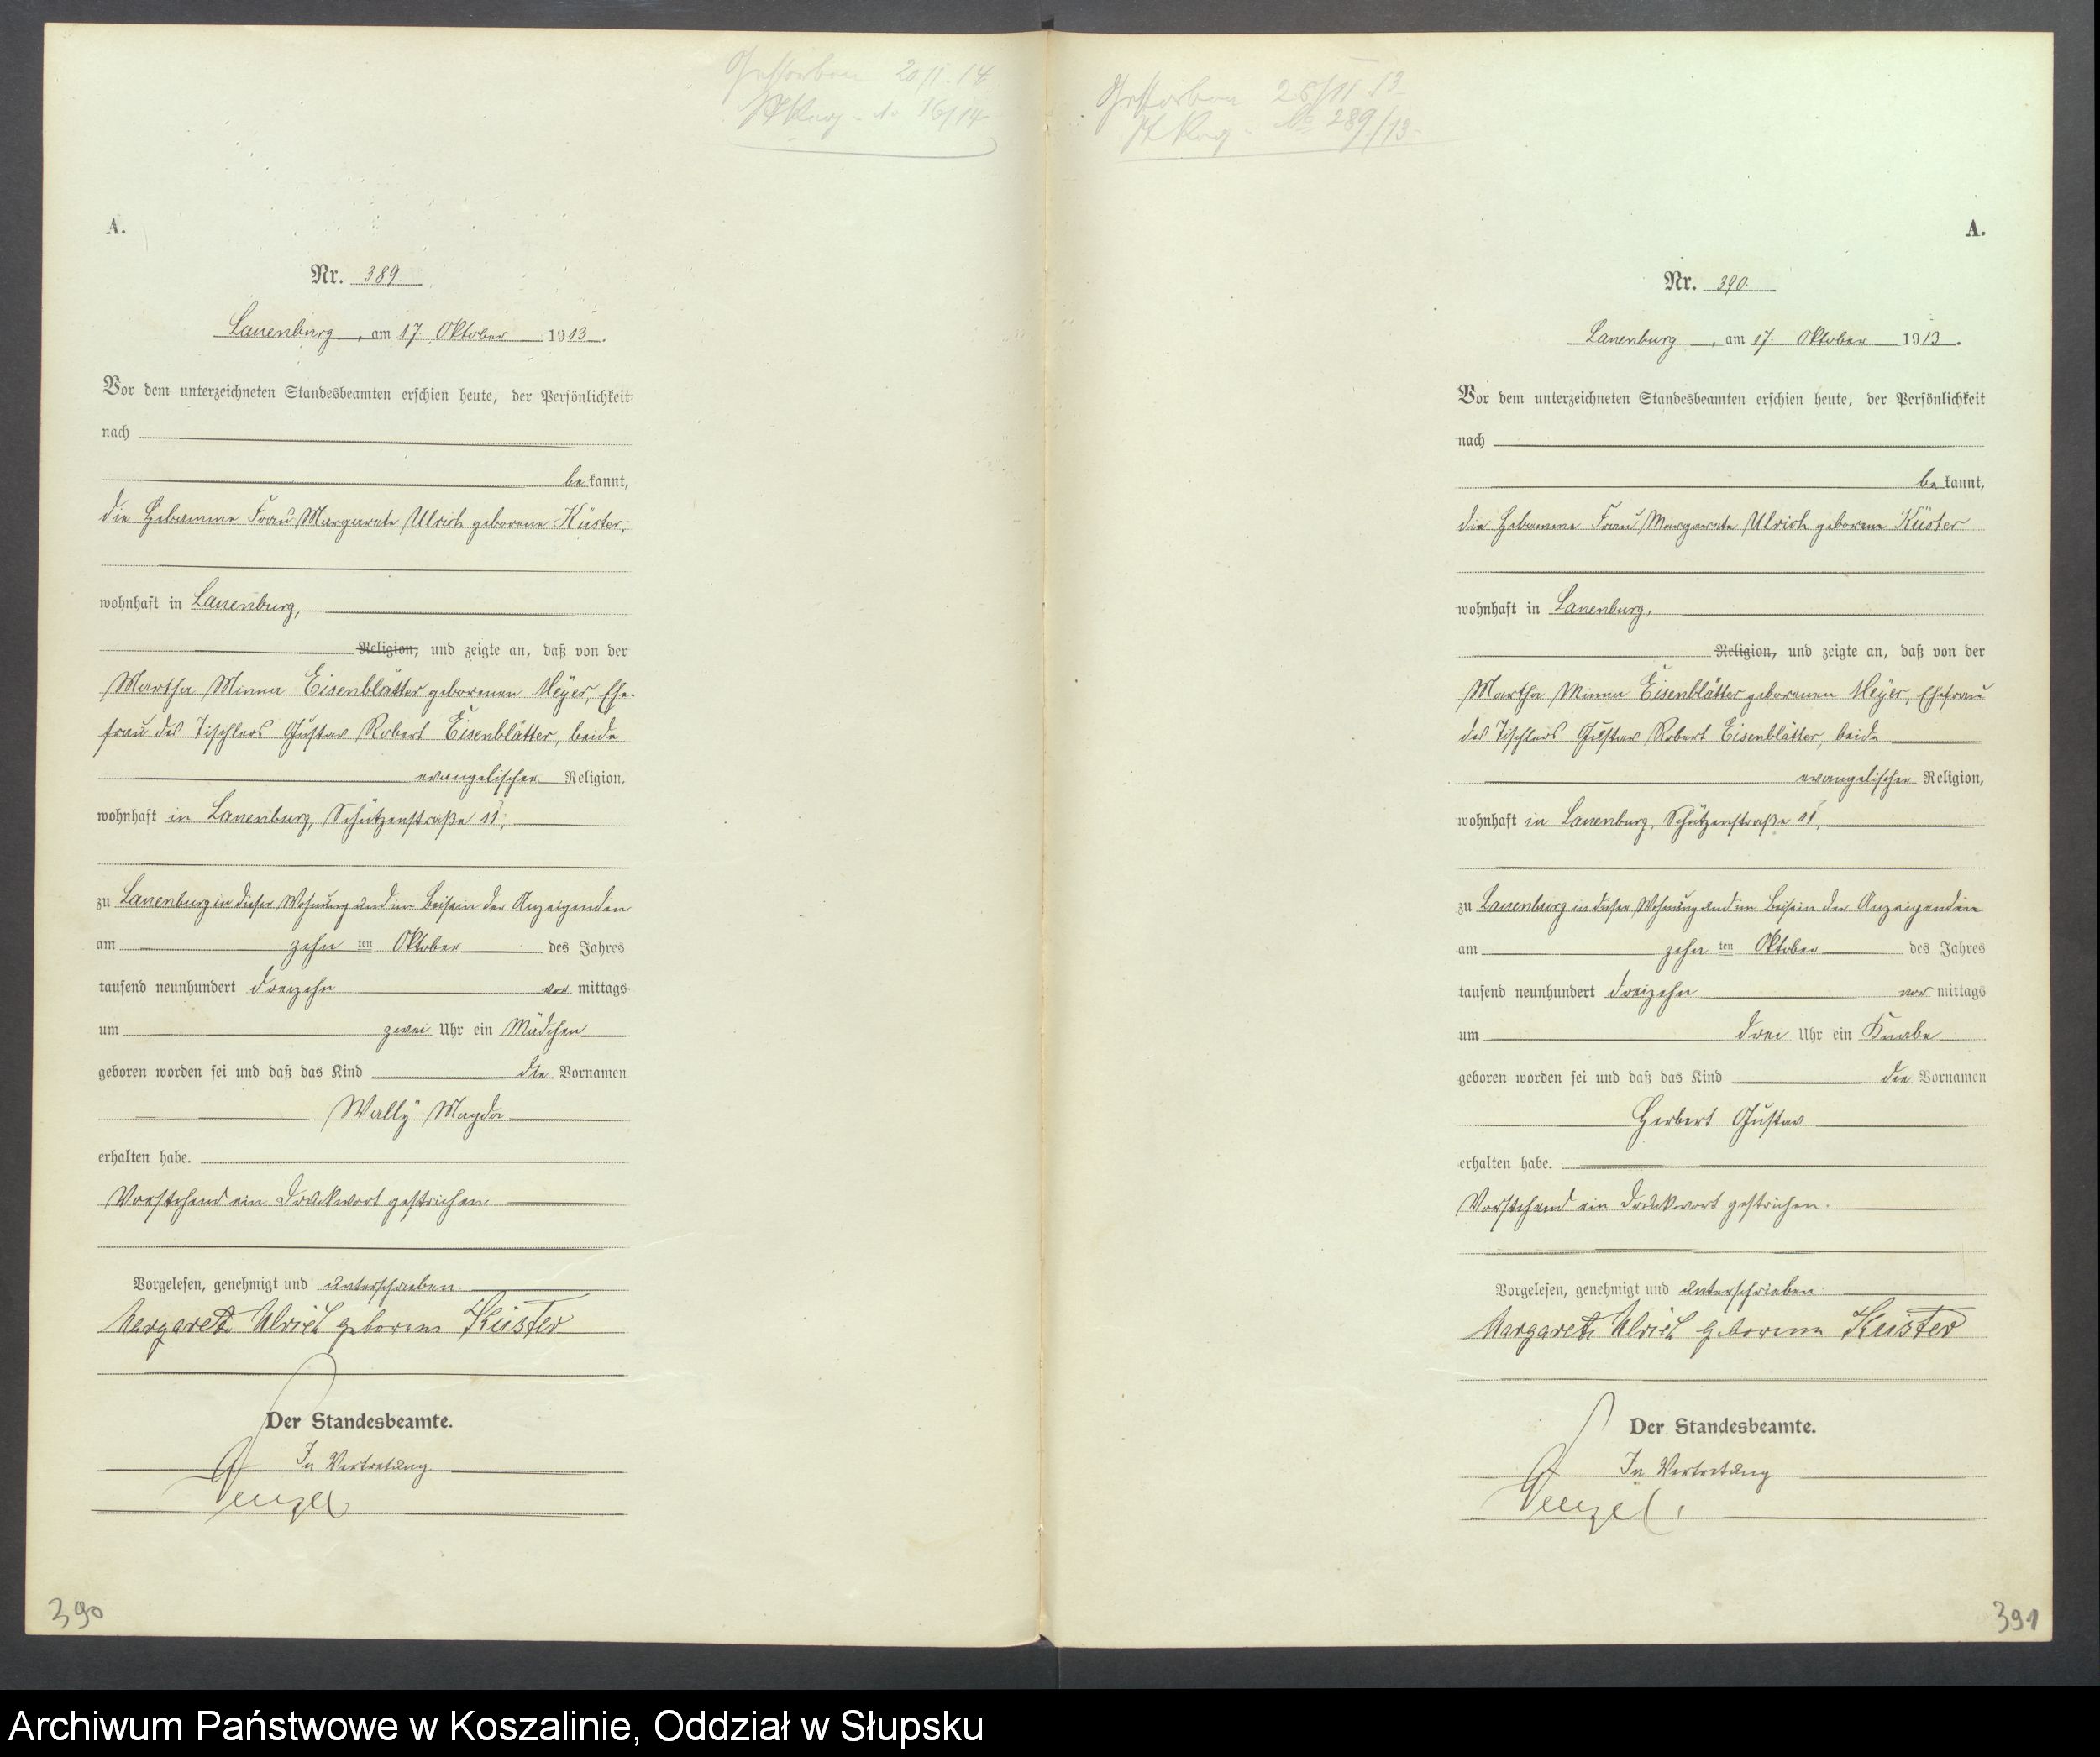 Gestorben 20/1. 14
St. Reg. No 16/14
A.
Nr. 389.
Lauenburg, am 17. Oktober 1913.
Vor dem unterzeichneten Standesbeamten erschien heute, der Persönlichkeit
nach
bekannt,
die Hebamme Frau Margarete Ulrich geborene Küster,
wohnhaft in Lauenburg,
Religion, und zeigte an, daß von der
Martha Minna Eisenblätter geborenen Meyer, Ehe-
frau des Tischlers Gustav Robert Eisenblätter, beide
evangelischer Religion,
wohnhaft in Lauenburg, Schützenstraße 11,
zu Lauenburg in dieser Wohnung und im Beisein der Anzeigenden
am zehnten Oktober des Jahres
tausend neunhundert dreizehn vormittags
um zwei Uhr ein Mädchen
geboren worden sei und daß das Kind die Vornamen
Wally Magda
erhalten habe.
Vorstehend ein Druckwort gestrichen.
Vorgelesen, genehmigt und unterschrieben
Margarete Ulrich geborene Küster
Der Standesbeamte.
In Vertretung
390
Gestorben 28/11 13
St. Reg. No 289/13
A.
Nr. 390.
Lauenburg, am 17. Oktober 1913.
Vor dem unterzeichneten Standesbeamten erschien heute, der Persönlichkeit
nach
bekannt,
die Hebamme Frau Margarete Ulrich geborene Küster
wohnhaft in Lauenburg,
Religion, und zeigte an, daß von der
Martha Minna Eisenblätter geborenen Meyer, Ehefrau
des Tischlers Gustav Robert Eisenblätter, beide
evangelischer Religion,
wohnhaft in Lauenburg, Schützenstraße 11,
zu Lauenburg in dieser Wohnung und im Beisein der Anzeigenden
am zehnten Oktober des Jahres
tausend neunhundert dreizehn vormittags
um drei Uhr ein Knabe
geboren worden sei und daß das Kind die Vornamen
Herbert Gustav
erhalten habe.
Vorstehend ein Druckwort gestrichen.
Vorgelesen, genehmigt und unterschrieben.
Margarete Ulrich geborene Küster
Der Standesbeamte.
In Vertretung
391
Archiwum Państwowe w Koszalinie, Oddział w Słupsku